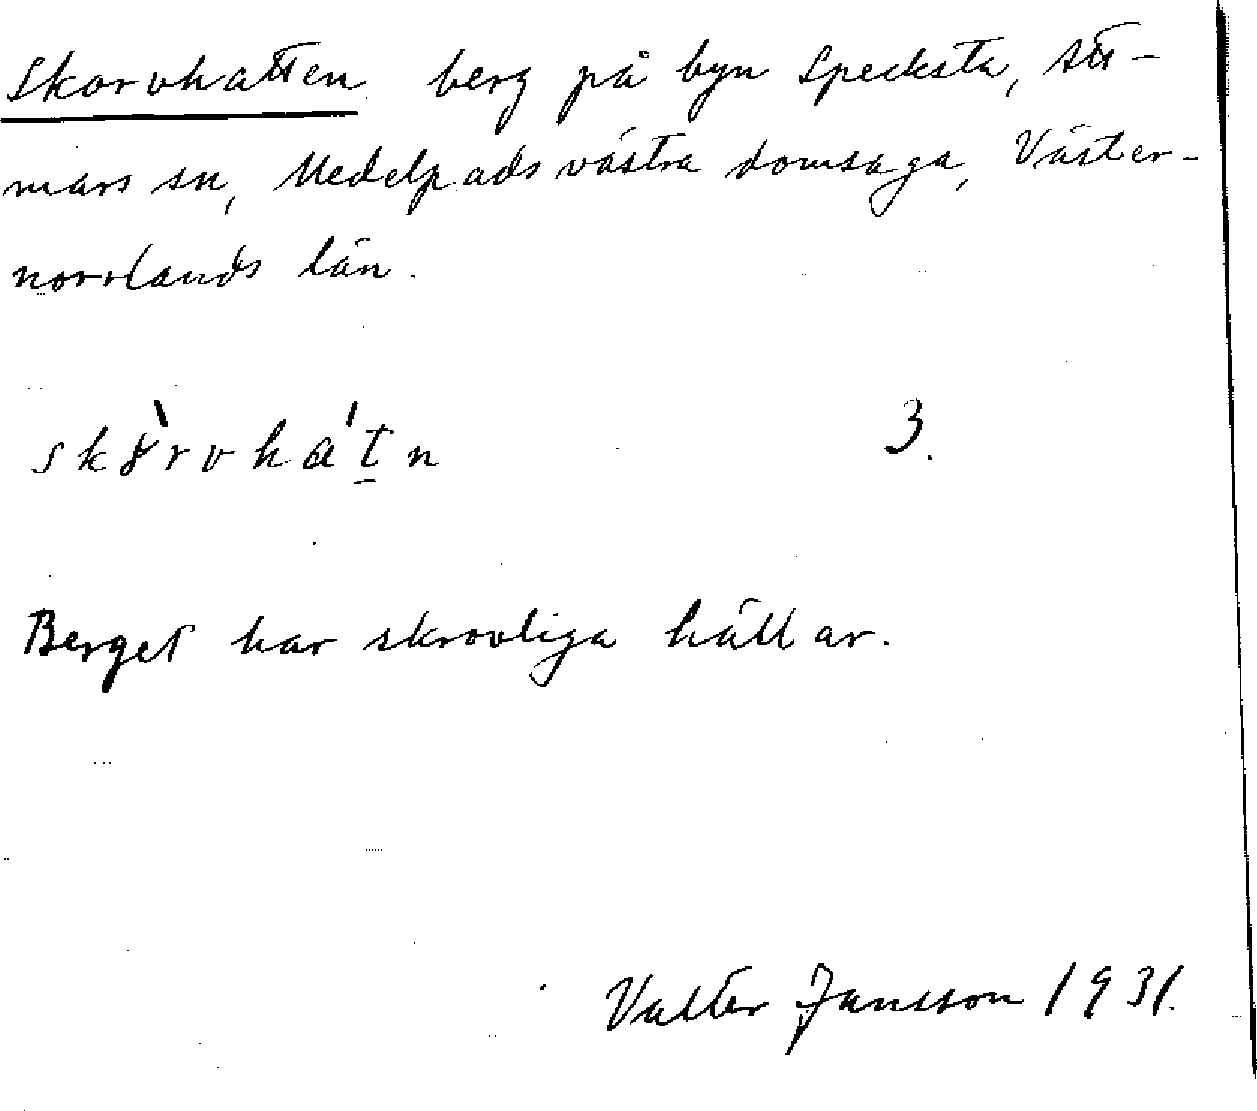 Skorvhatten berg på byn Specksta, Att-
mars sn, Medelpads västra domsaga, Väster-
norrlands län.
skòrvhát̠n 3.
Berget har skrovliga hällar.
Valter Jansson 1931.